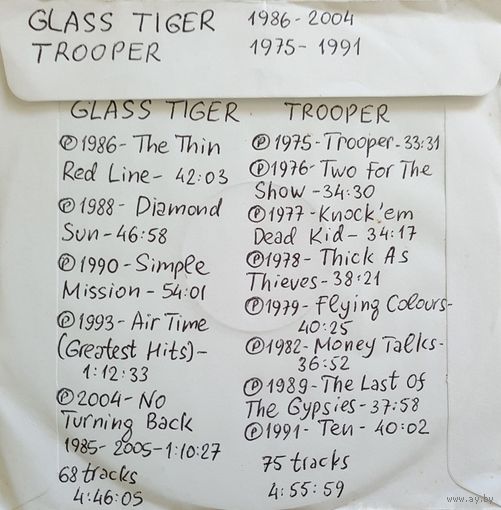 GLASS TIGER 1986-2004
TROOPER 1975-1991
GLASS TIGER
℗1986-The Thin
Red Line- 42:03
℗1988- Diamond
Sun-46:58
℗1990-Simple
Mission- 54:01
℗1993-Air Time
(Greatest Hits)-
1:12:33
℗2004-No
Turning Back
1985-2005-1:10:27
68 tracks
4:46:05
TROOPER
℗1975-Trooper-33:31
℗1976-Two For The
Show-34:30
℗1977-Knock'em
Dead Kid- 34:17
℗1978- Thick As
Thieves-38:21
℗1979-Flying Colours-
40:25
℗1982-Money Talks-
36:52
℗1989-The Last Of
The Gypsies-37:58
℗1991- Ten- 40:02
75 tracks
4:55:59
www.ay.by